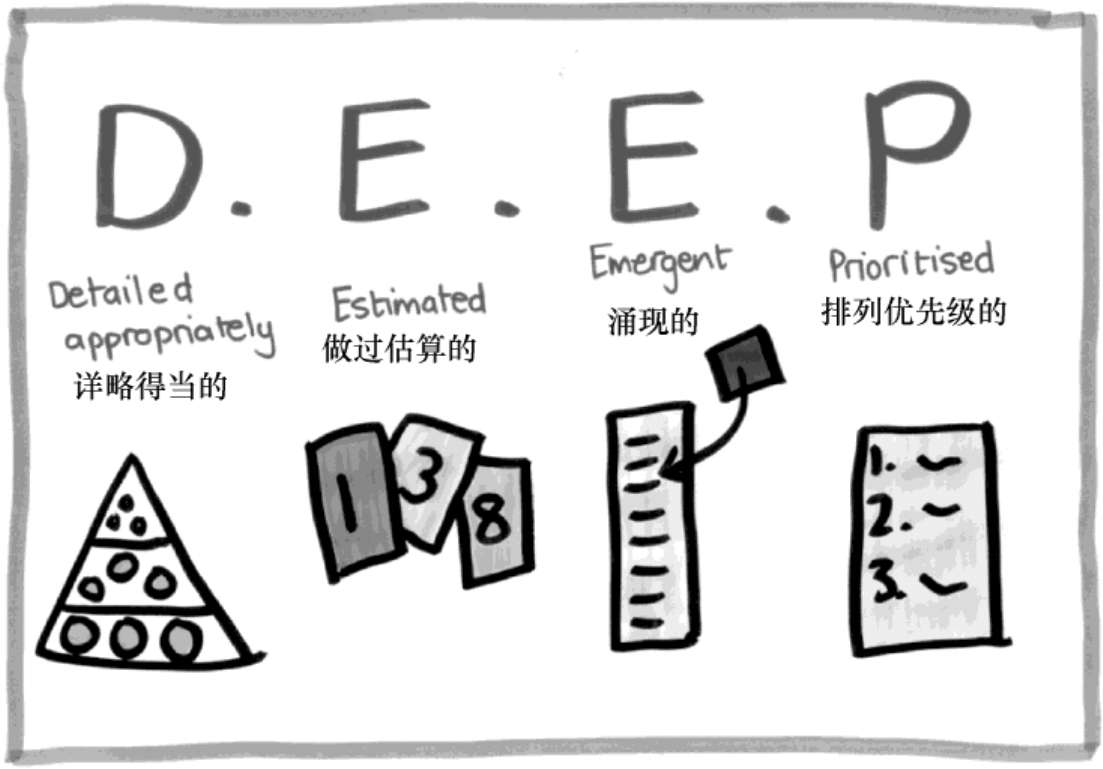 D.E.E.P
Detailed
appropriately
详略得当的
Estimated
做过估算的
Emergent
涌现的
Prioritised
排列优先级的
1 3 8
1.
2.
3.